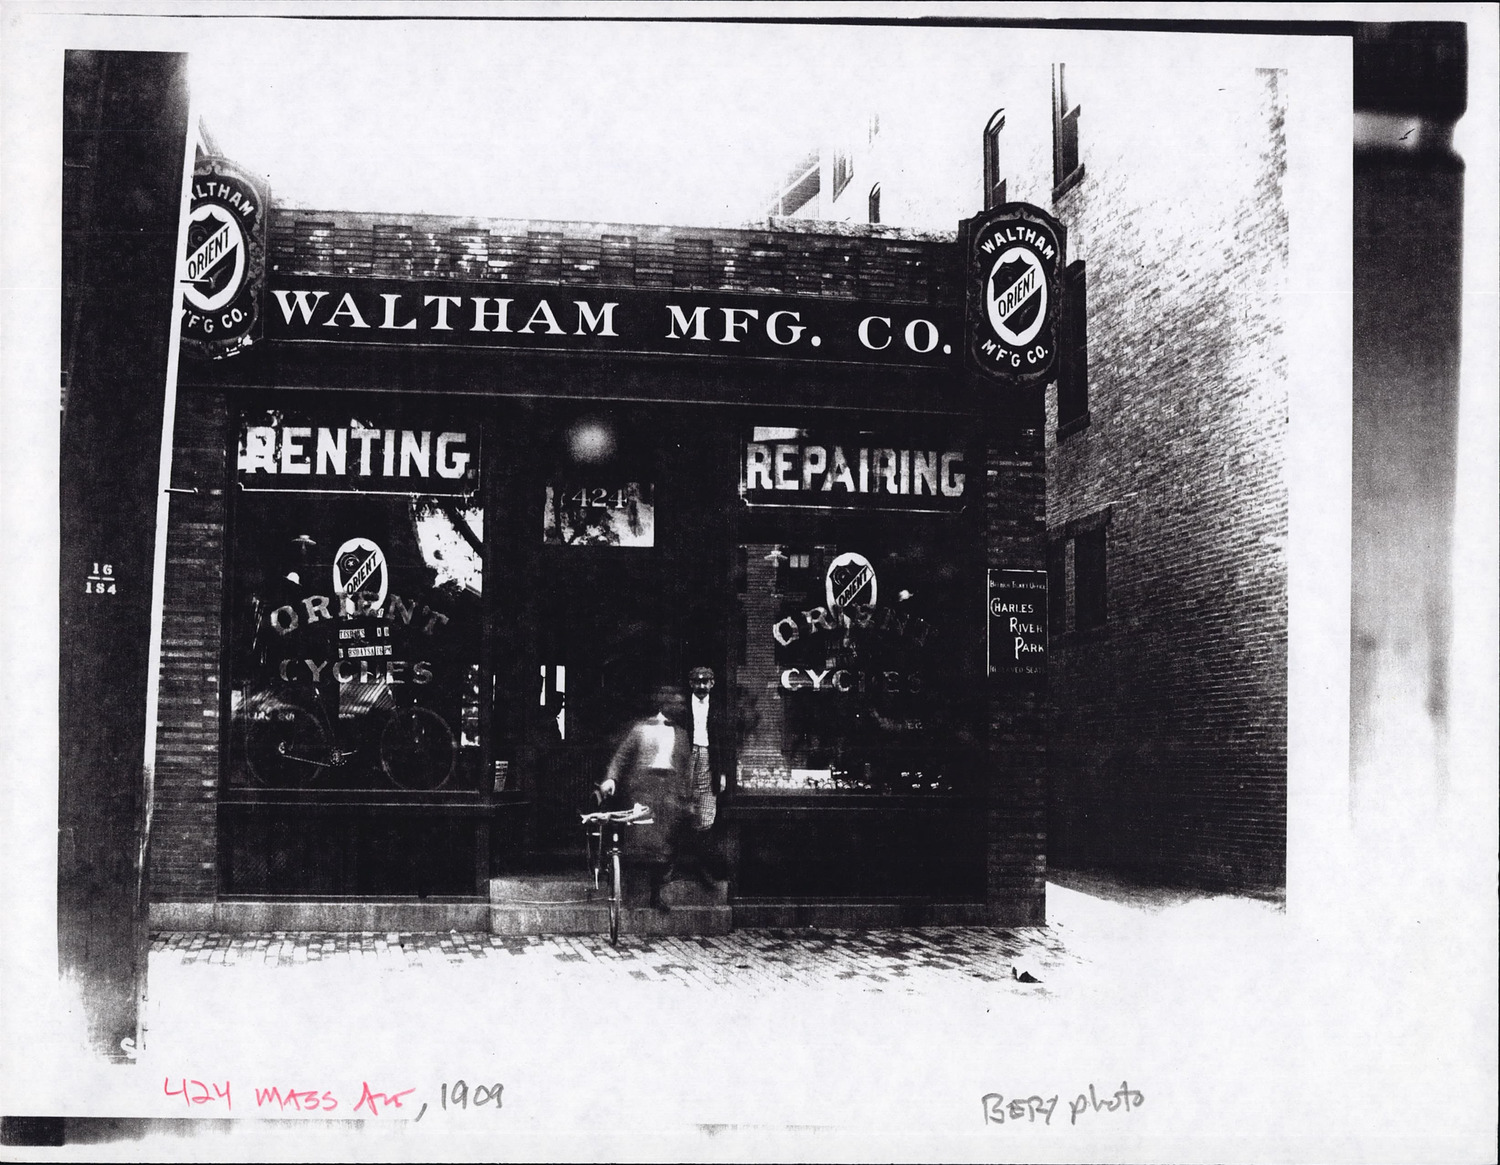 WALTHAM
ORIENT
M'F'G CO.
WALTHAM MFG. CO.
WALTHAM
ORIENT
M'F'G CO.
RENTING
424
REPAIRING
ORIENT
ORIENT
CYCLES
ORIENT
ORIENT
CYCLES
CHARLES
RIVER
PARK
16
184
424 MASS AVE, 1909
BERY photo